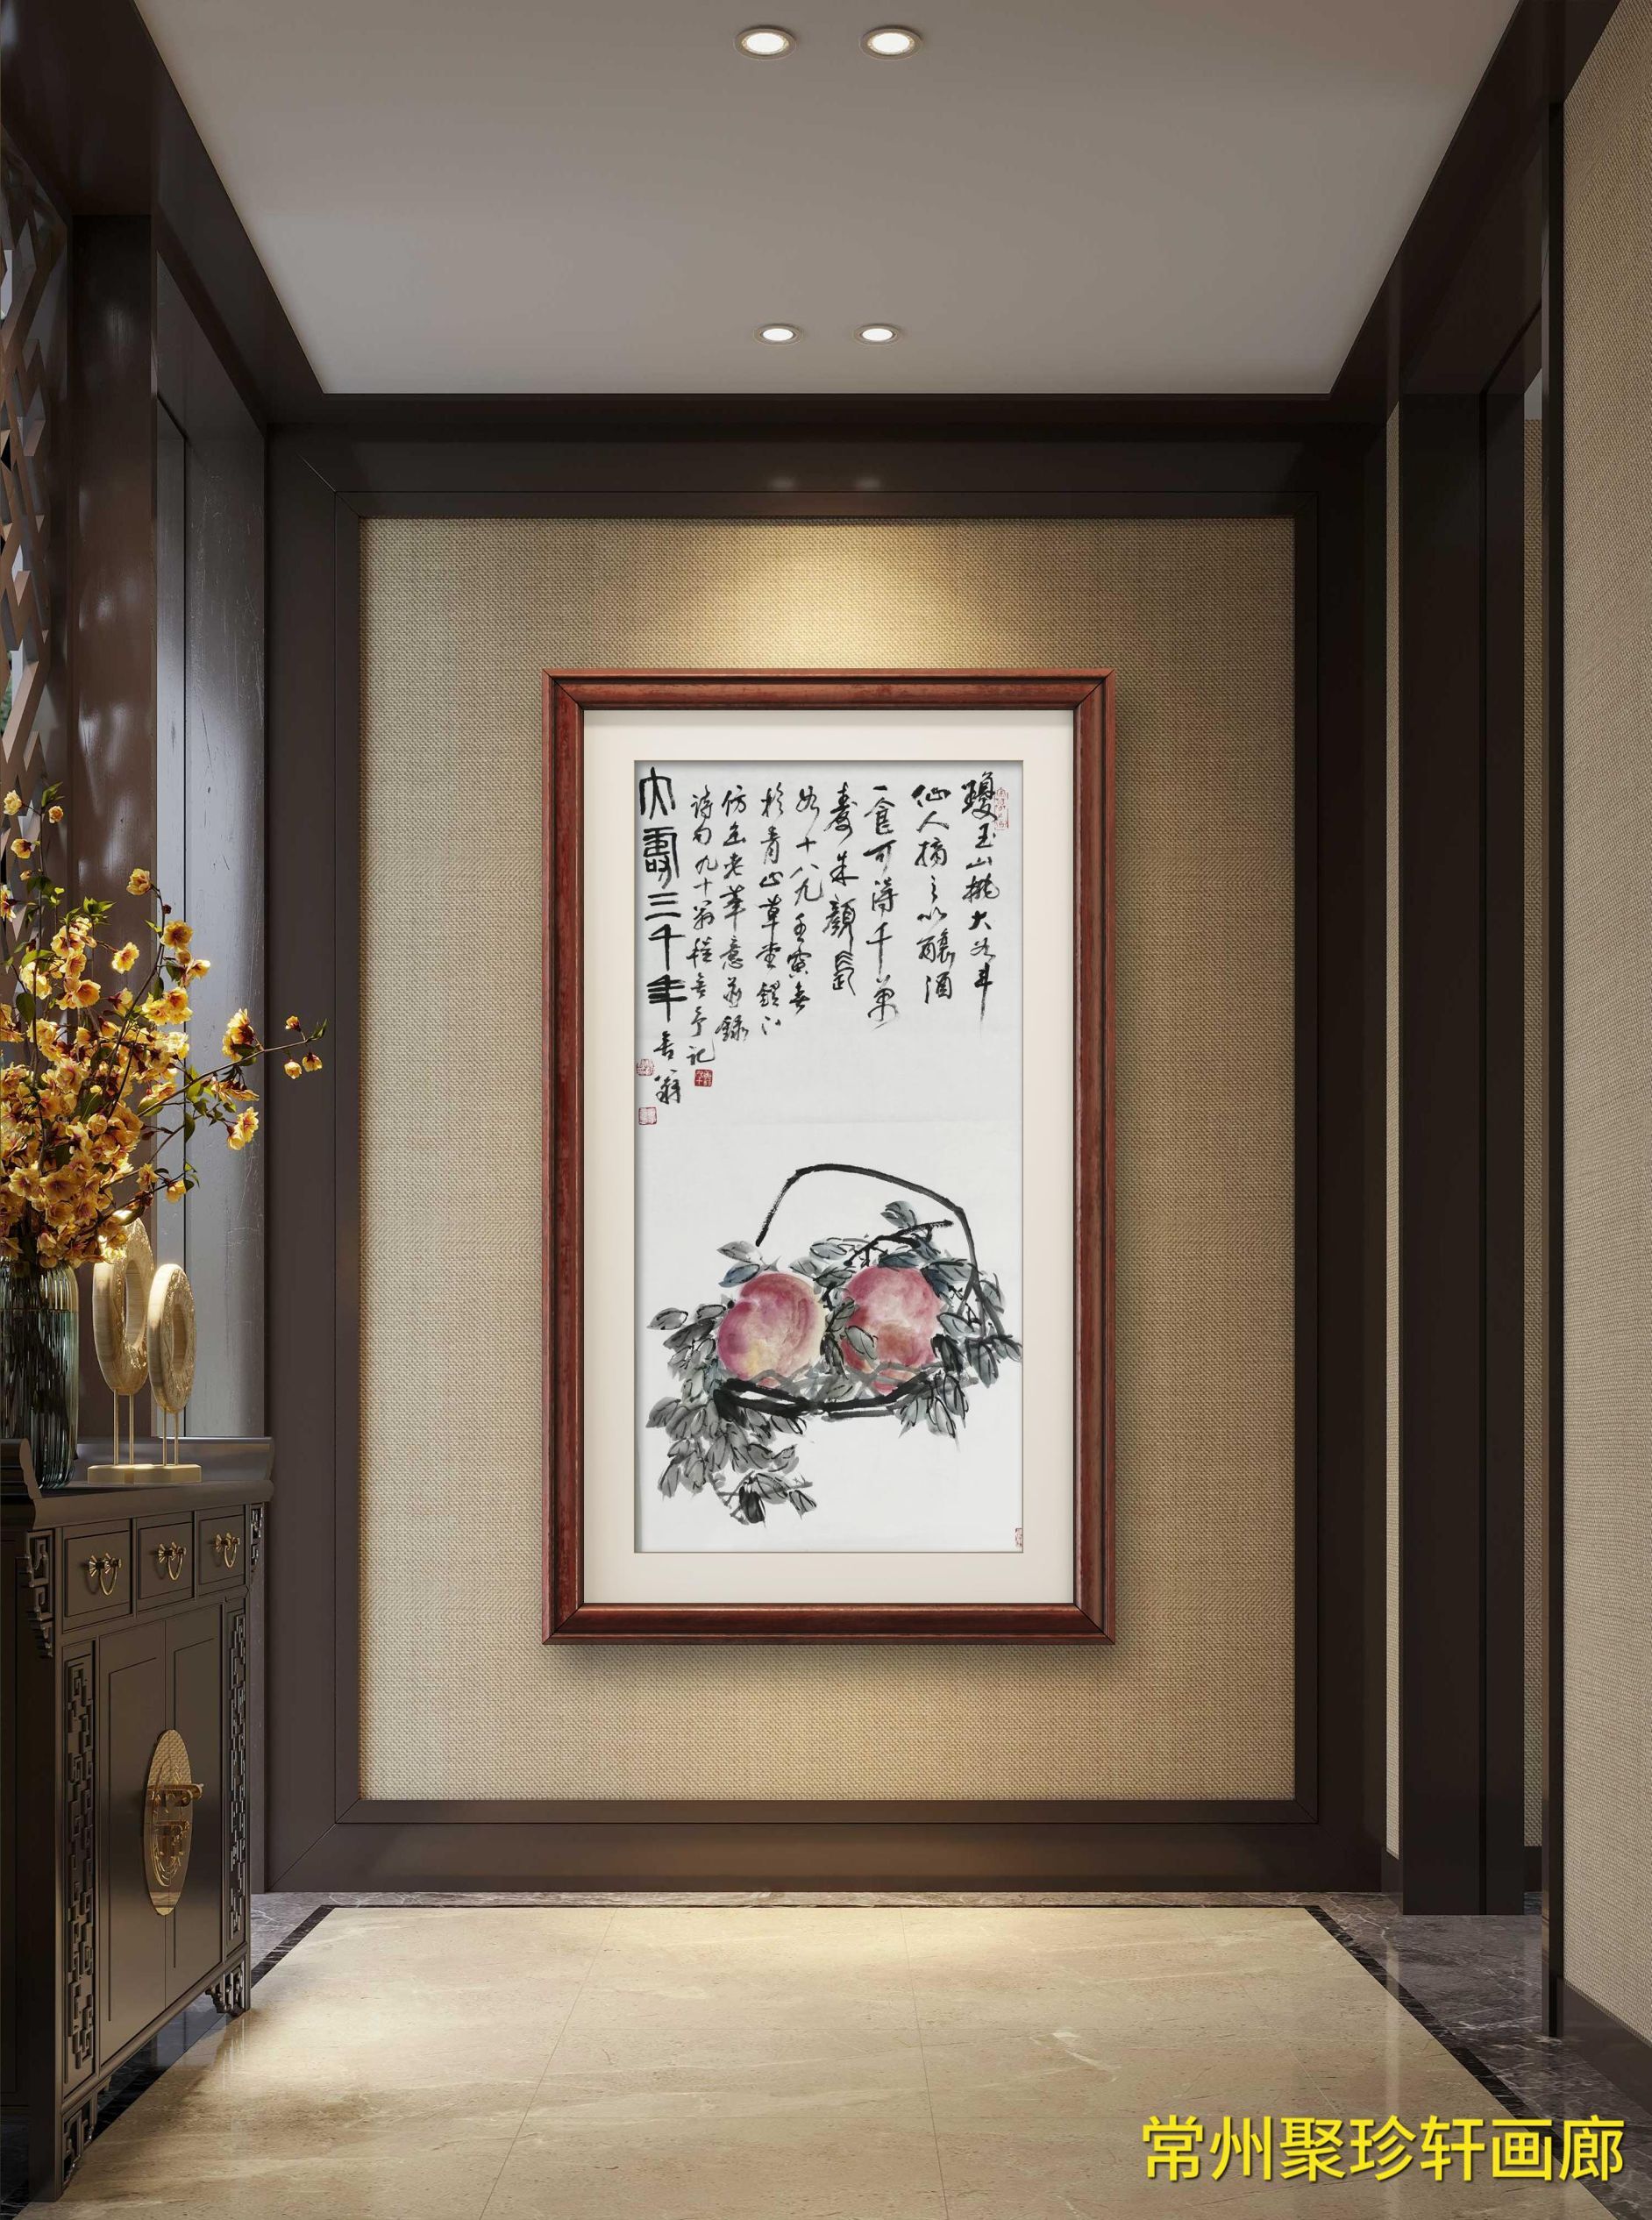 瓊玉山桃大如斗
仙人摘之以釀酒
一食可得千萬
壽朱顏長
如十八九壬寅春
於青山草堂鐙下
仿缶老筆意並錄
詩句九十翁程予記
大壽三千年翁
常州聚珍轩画廊